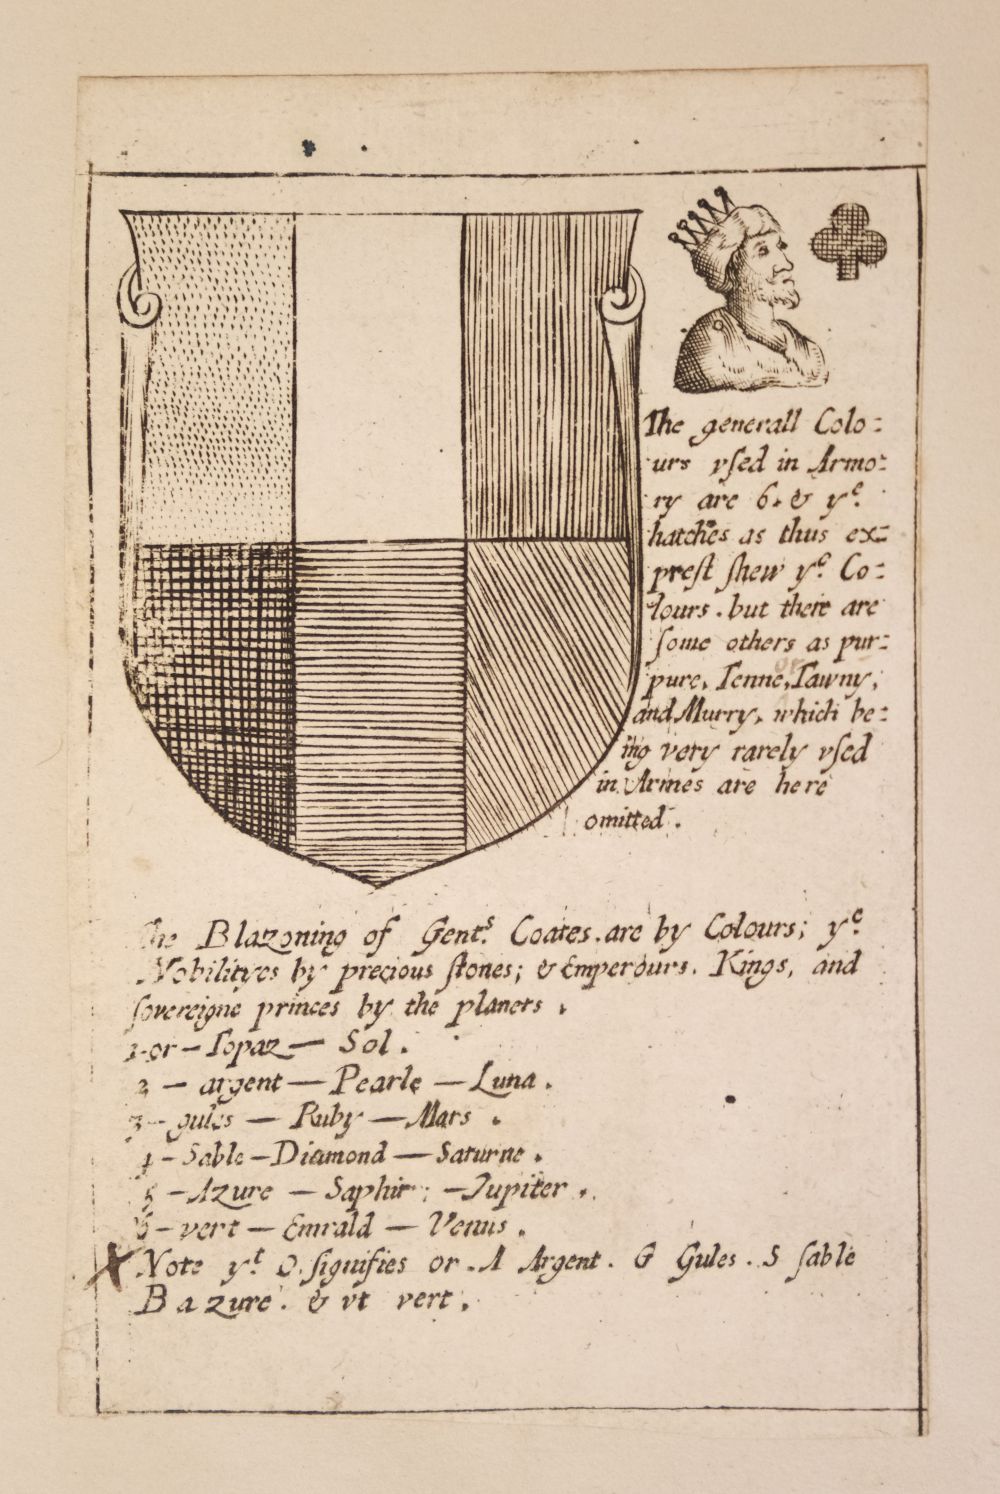 The generall Colo:
urs vſed in Armo:
ry are 6. & yᵉ.
hatches as thus ex:
preſt ſhew yᵉ. Co:
lours. but there are
ſome others as pur:
pure, Tenne, or Tawny,
and Murry, which be:
ing very rarely vſed
in Armes are here
omitted.
The Blazoning of Gentˢ. Coates. are by Colours; yᵉ.
Nobilityes by precious ſtones; & Emperours. Kings, and
ſovereigne princes by the planets.
1-or – Topaz – Sol.
2 – argent – Pearle – Luna.
3 – gules – Ruby – Mars.
4 – Sable – Diamond – Saturne.
5 – Azure – Saphir; – Jupiter.
6 – vert – Emrald – Venus.
X Note yᵗ. O. ſignifies or. A Argent. G Gules. S ſable
B azure. & vt vert.